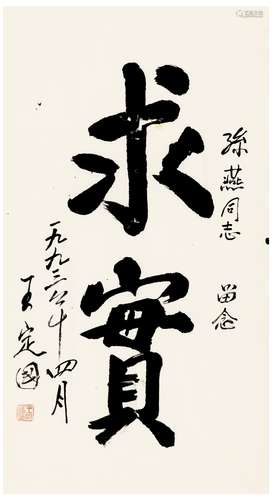 孫燕同志 留念
求實
一九九三年四月
王定國